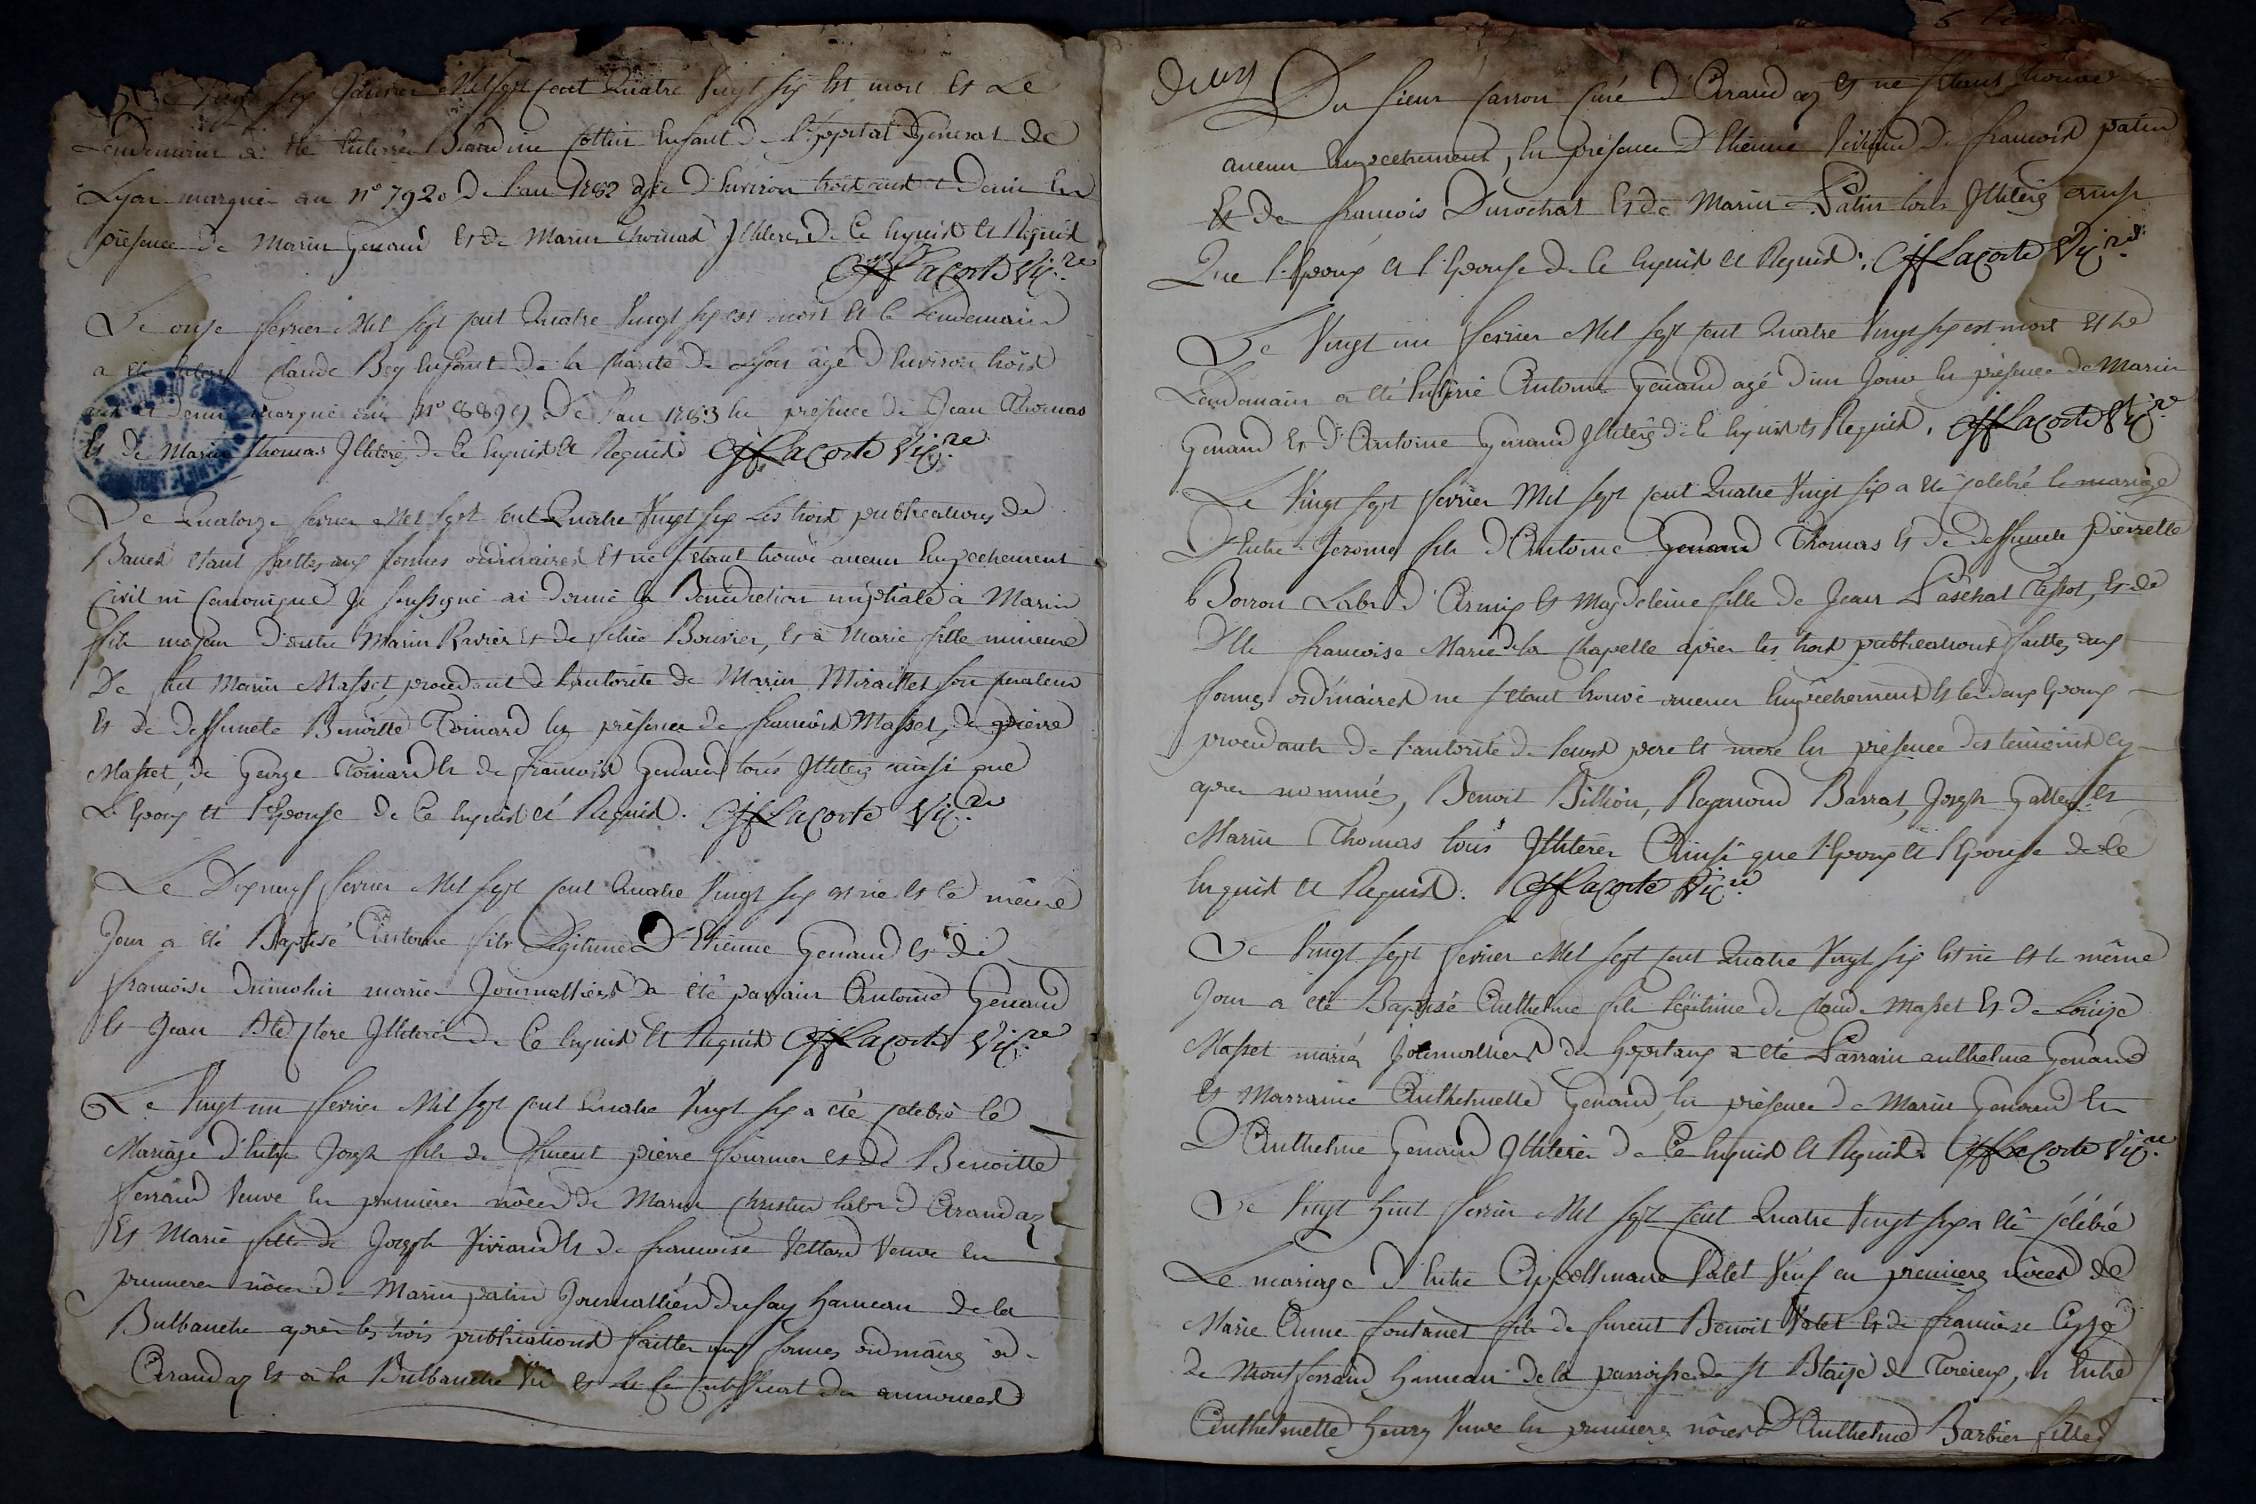 Le Vingt six Janvier Mil sept cent Quatre Vingt six Est mort Et Le
Lendemain a été Enterrée Blandine Cottin Enfant de l'hopital General de
Lyon marquée au n° 7920 de l'an 1782 agée d'Environ trois ans et demi En
présence de Marin Genaud Et de Marin Thomas Illiterés De Ce Enquis Et Requis
Lacorte Vic.re
Le onze fevrier Mil sept cent Quatre Vingt six est mort Et le Lendemain
a été Claude Bey Enfant de la Charité de Lyon âgé d'Environ trois
ans et demi marqué au n° 8899 De l'an 1783 En présence de Jean Thomas
Et De Marin Thomas Illiterés De Ce Enquis Et Requis Lacorte Vic.re
Le Quatorze fevrier Mil sept cent Quatre Vingt six Les trois publications de
Bancs étant faittes aux formes ordinaires Et ne s'étant trouvé aucun Empechement
Civil ni Canonique Je soussigné ai Donné la Bénédiction nuptiale à Marin
fils majeur d'entre Marin Ravier Et de Bouvier, Et à Marie fille mineure
De feu Marin Masset procedant de l'autorité de Marin Miraillet son curateur
Et de deffuncte Benoitte Toinard En présence de françois Masset, de pierre
Masset, de George Toinard Et de françois Genaud tous Illiterés ainsi que
L'Epoux Et l'Epouse De Ce Enquis Et Requis. Lacorte Vic.re
Le Dixneuf fevrier Mil sept cent Quatre Vingt six est né Et le même
Jour a été Baptisé Antoine fils Légitime D'Etienne Genaud Et de
françoise Dumolin mariés Journalliers a été parrain Antoine Genaud
Et Jean Illiterés De Ce Enquis Et Requis Lacorte Vic.re
Le Vingt un fevrier Mil sept cent Quatre Vingt six a été celebré le
Mariage d'Entre Joseph fils de pierre fournier Et de Benoitte
ferrand Veuve En premières nôces de Marin Christin labr d'Arandaz
Et Marie fille de Joseph Viviand Et de françoise Vettard Veuve En
premieres nôces de Marin patin Journallier du fay hameau de la
Bulbanche après les trois publications faittes aux formes ordinaires à
Arandaz Et à la Bulbanche Vu Et Lu le Certifficat des annonces
Deux
Du sieur Carron Curé d'Arandaz Et ne s'étant trouvé
aucun Empechement, En présence D'Etienne Viviand De françois patin
Et De françois Durochat Et De Marin Patin tous Illiterés ainsi
Que l'Epoux Et l'Epouse De Ce Enquis Et Requis. Lacorte Vic.re
Le Vingt un fevrier Mil sept cent Quatre Vingt six est mort Et Le
Lendemain a été Enterré Antoine Genaud agé d'un Jour En présence de Marin
Genaud Et d'Antoine Genaud Illiterés de Ce Enquis Et Requis. Lacorte Vic.re
Le Vingt sept fevrier Mil sept cent Quatre Vingt six a été celebré le mariage
D'Entre Jerome fils d'Antoine Genaud Thomas Et de Deffuncte Pierrette
Borron Labr d'Armix Et Magdeleine fille de Jean Paschal Tissot, Et de
Dlle françoise Marie de la Chapelle après les trois publications faittes aux
formes ordinaires ne s'étant trouvé aucun Empêchement Et les deux Epoux
procedants de l'autorité de leurs pere Et mere En présence des témoins cy
après nommés, Benoit Billion, Raymond Barrat, Joseph Gallex Et
Marin Thomas tous Illiterés Ainsi que l'Epoux Et l'Epouse de Ce
Enquis Et Requis. Lacorte Vic.re
Le Vingt sept fevrier Mil sept cent Quatre Vingt six Est né Et le même
Jour a été Baptisé Anthelme fils légitime de Claude Masset Et De Louise
Masset mariés Journalliers a été Parrain anthelme Genaud
Et Marraine Anthelmette Genaud En présence De Marin Genaud Et
D'Anthelme Genaud Illiterés De Ce Enquis Et Requis Lacorte Vic.re
Le Vingt huit fevrier Mil sept cent Quatre Vingt six a été célébré
Le mariage d'Entre Valet Veuf en premieres nôces de
Marie Anne fontanet fils de Benoit Valet Et de françoise
de Montferrand hameau de la parroisse de St Blaise de Torcieux, Et Entre
Anthelmette henry Veuve En premieres nôces D'Anthelme Barbier fille